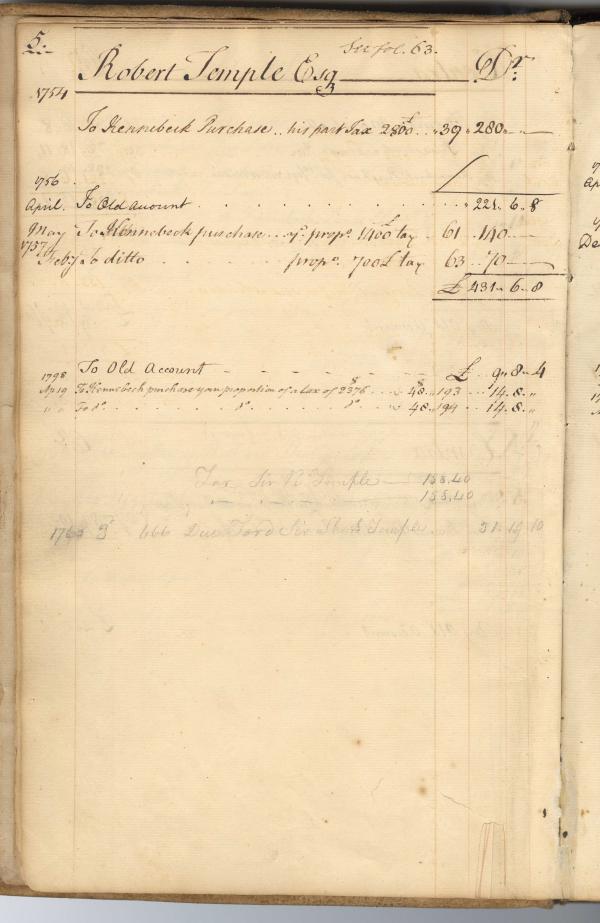 5.
See fol. 63.
Robert Temple Esq Dr.
1754
To Kennebeck Purchase.. his part Tax 2800£.. 39 280
1756
April. To Old Account 221. 6. 8
May To Kennebeck purchase.. yr. propn. 1400£ tax 61 140
1757
Feby To ditto propn. 700£ tax 63 70
£ 431. 6. 8
1798 To Old Account £ 9. 8. 4
Ap 19 To Kennebeck purchase your proportion of a tax of $2376 $48 193 14. 8. "
" " To do. do. do. 48 194 14. 8. "
Temple 158,40
158,40
666 Due Temple 31. 19. 10